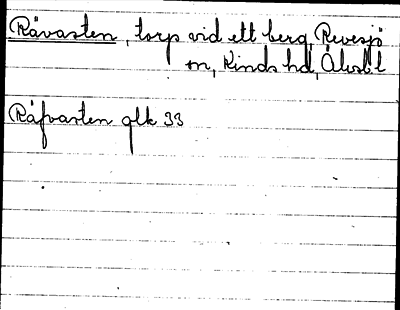 Råvasten, torp vid ett berg, Revesjö
sn, Kinds hd, Älvsb. l
Råfvasten glk 33